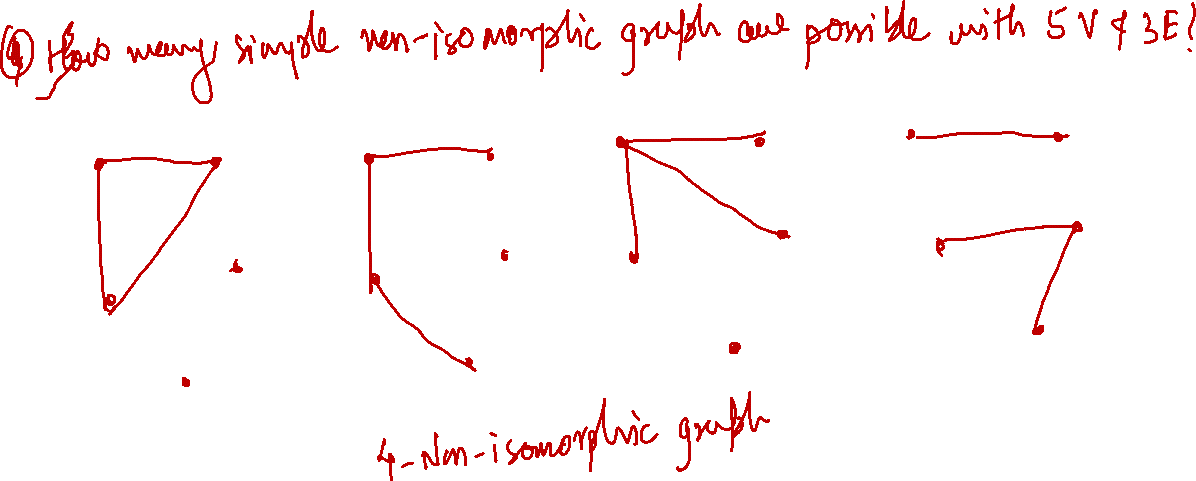 Q How many simple non-isomorphic graph are possible with 5 V & 3E?
4-Non-isomorphic graph